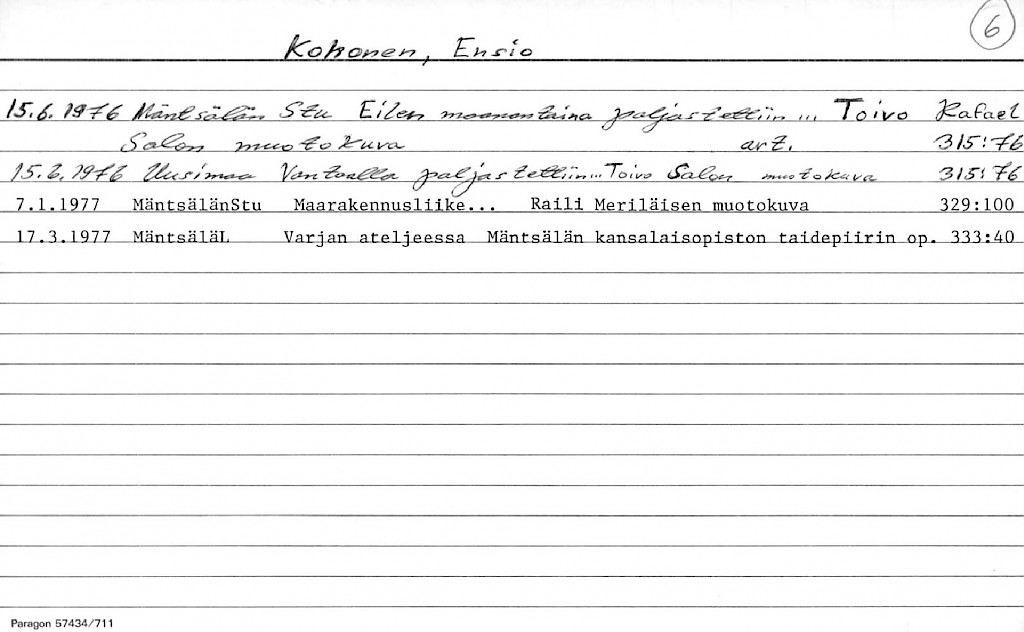 6
Kohonen, Ensio
15.6.1976 Mäntsälän Stu Eilen maanantaina paljastettiin... Toivo Rafael
Salon muotokuva art. 315:76
15.6.1976 Uusimaa Vantaalla paljastettiin... Toivo Salon muotokuva 315:76
7.1.1977 MäntsälänStu Maarakennusliike... Raili Meriläisen muotokuva 329:100
17.3.1977 MäntsäläL Varjan ateljeessa Mäntsälän kansalaisopiston taidepiirin op. 333:40
Paragon 57434/711